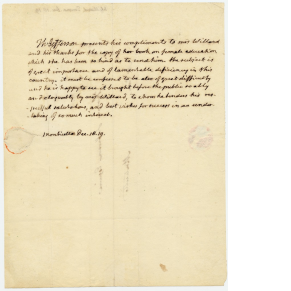 Th: Jefferson presents his compliments to miss Willard
and his thanks for the copy of her book on female education
which she has been so kind as to send him. the subject is
of great importance and of lamentable deficiency in this
country. it must be confessed to be also of great difficulty
and he is happy to see it brought before the public so ably
and eloquently by miss Willard, to whom he tenders his re-
spectful salutations, and best wishes for success in an under-
taking of so much interest.
Monticello Dec. 10. 19.